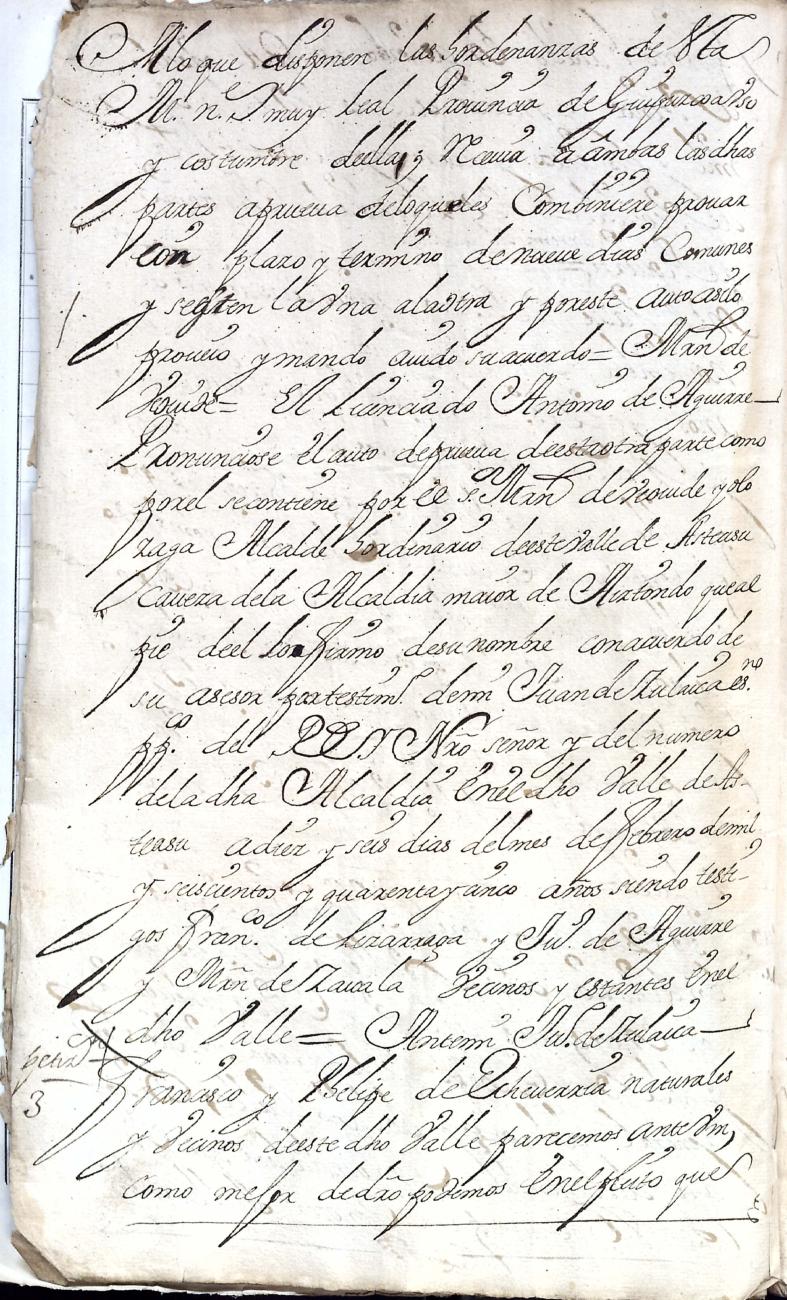 A lo que disponen las hordenanzas de esta
M. n.e y muy leal Provincia de Guipuzcoa Uso
y costumbre della; Reciuia a ambas las dhas
partes a prueua de lo que les Combiniere prouar
con plazo y termino de nueue dias Comunes
y se giten la Una a la otra y por este auto asi lo
proueio y mando auido su acuerdo = Mrn de
Recuide = El Licenciado Antonio de Aguirre
Pronunciose El auto de prueua de esta otra parte como
por el se contiene por el Sr. Mrn de Recuide y olo
zaga Alcalde hordinario de este Valle de Asteasu
Caueza de la Alcaldia maior de Aiztondo que al
pie de el lo firmo de su nombre con acuerdo de
su asesor por testimo. de mi Juan de Zulaica es.no
pp.co del REY Nrõ señor y del numero
de la dha Alcaldia En el dho Valle de As-
teasu a diez y seis dias del mes de febrero de mil
y seiscientos y quarenta y cinco años siendo testi-
gos Fran.co de Lizarraga y Ju.o de Aguirre
y Mrñ de Zauala Vecinos y estantes En el
dho Valle = Ante mi Ju.o de Zulaica
petiz.on
3
Francisco y Phelipe de Echeverria naturales
y Vecinos de este dho Valle parecemos ante Vm,
como mejor de drõ podemos En el pleito que